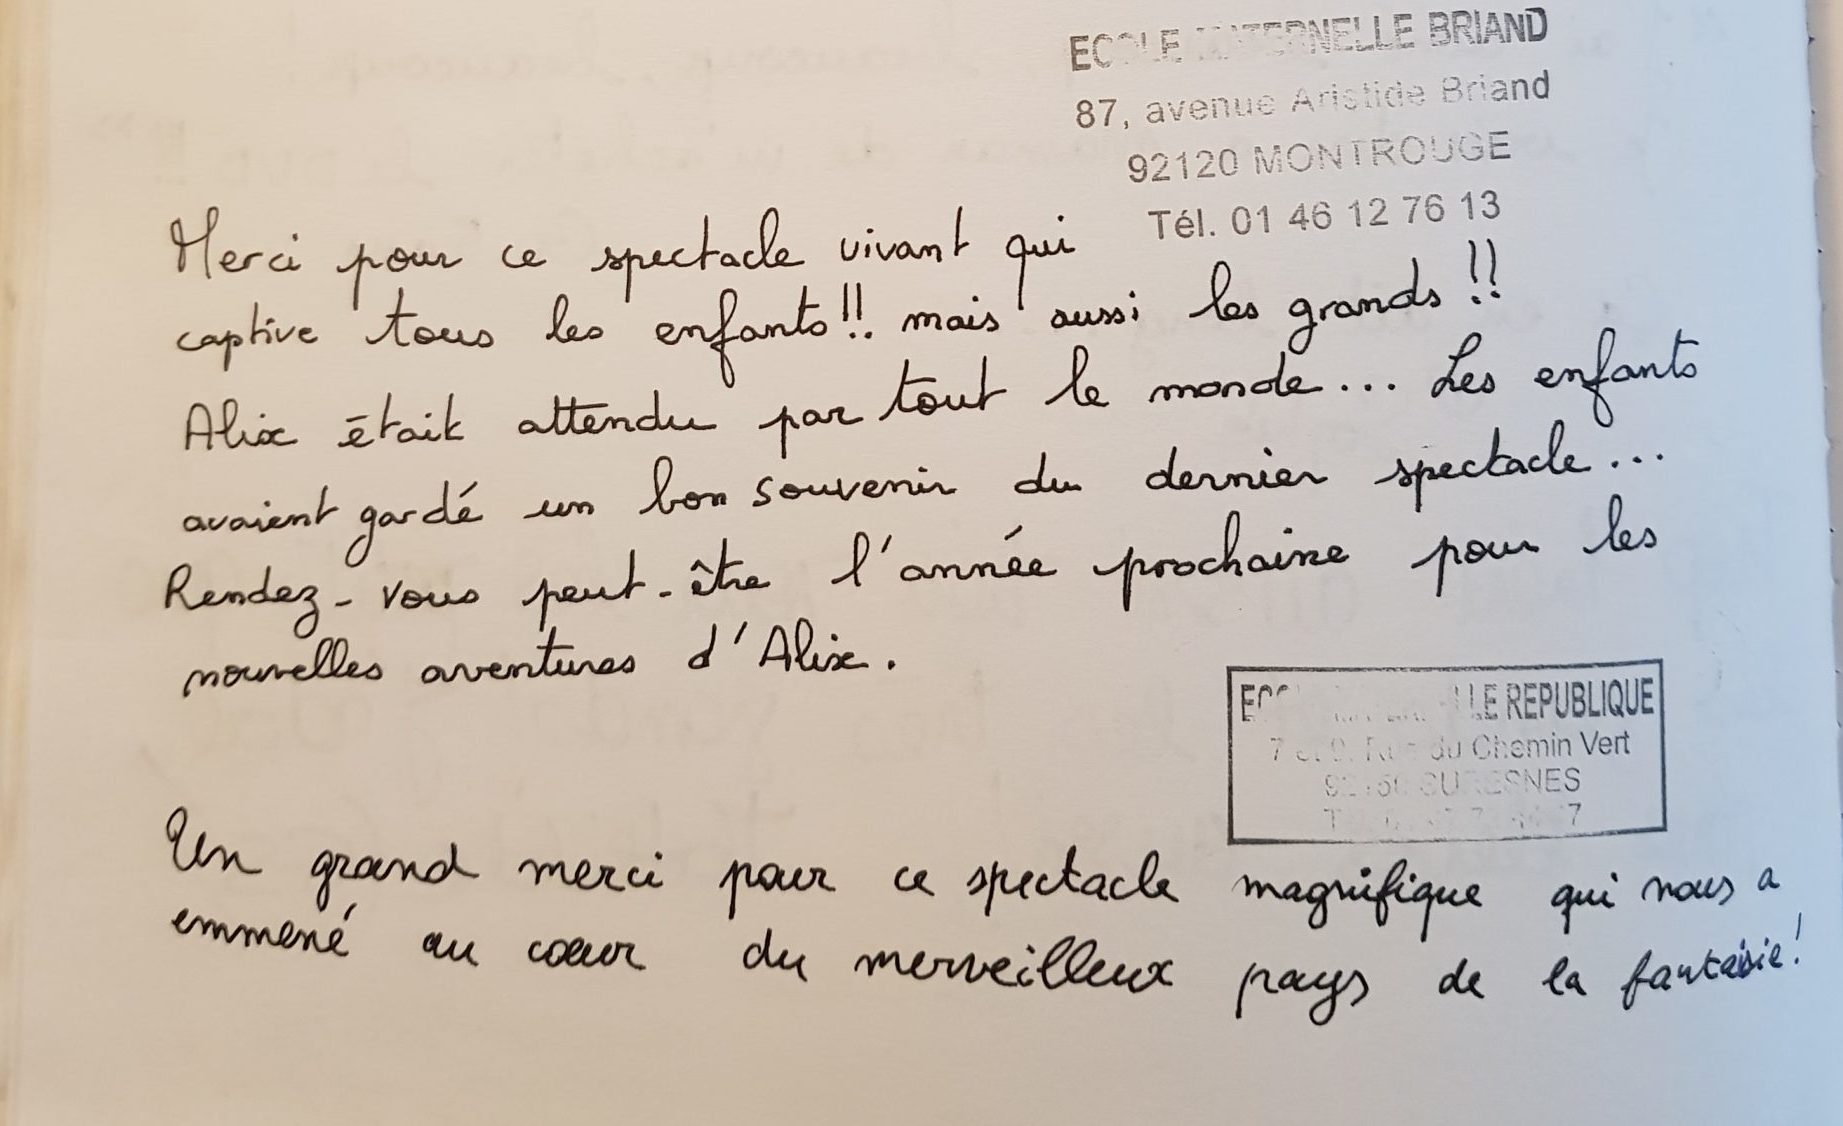 ECOLE MATERNELLE BRIAND
87, avenue Aristide Briand
92120 MONTROUGE
Tél. 01 46 12 76 13
Merci pour ce spectacle vivant qui
captive tous les enfants!!. mais aussi les grands !!
Alix était attendu par tout le monde... Les enfants
avaient gardé un bon souvenir du dernier spectacle...
Rendez-vous peut-être l'année prochaine pour les
nouvelles aventures d'Alix.
ECOLE MATERNELLE REPUBLIQUE
Rue du Chemin Vert
92150 SURESNES
Un grand merci pour ce spectacle magnifique qui nous a
emmené au cœur du merveilleux pays de la fantaisie!